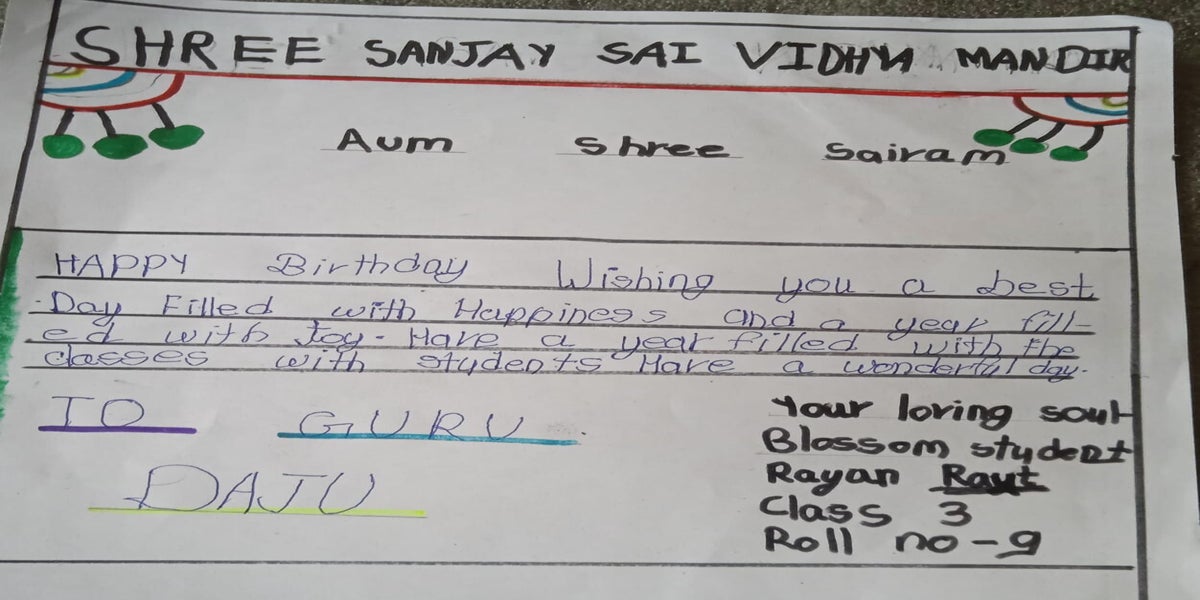 SHREE SANJAY SAI VIDHYA MANDIR
Aum Shree Sairam
HAPPY Birthday Wishing you a best
Day Filled with Happiness and a year fill-
ed with Joy. Have a year filled with the
classes with students Have a wonderful day.
TO GURU
DAJU
Your loving soul
Blossom student
Rayan Raut
Class 3
Roll no-9